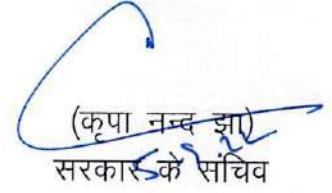 (कृपा नन्द झा)
सरकार के संचिव